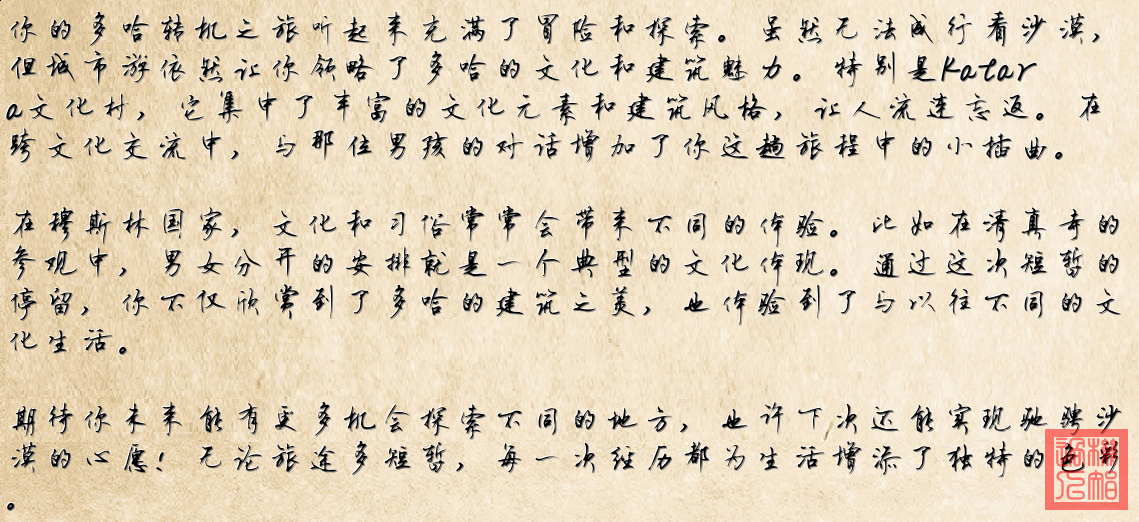 你的多哈转机之旅听起来充满了冒险和探索。虽然无法成行看沙漠，
但城市游依然让你领略了多哈的文化和建筑魅力。特别是Katar
a文化村，它集中了丰富的文化元素和建筑风格，让人流连忘返。在
跨文化交流中，与那位男孩的对话增加了你这趟旅程中的小插曲。
在穆斯林国家，文化和习俗常常会带来不同的体验。比如在清真寺的
参观中，男女分开的安排就是一个典型的文化体现。通过这次短暂的
停留，你不仅欣赏到了多哈的建筑之美，也体验到了与以往不同的文
化生活。
期待你未来能有更多机会探索不同的地方，也许下次还能实现驰骋沙
漠的心愿！无论旅途多短暂，每一次经历都为生活增添了独特的色彩
。